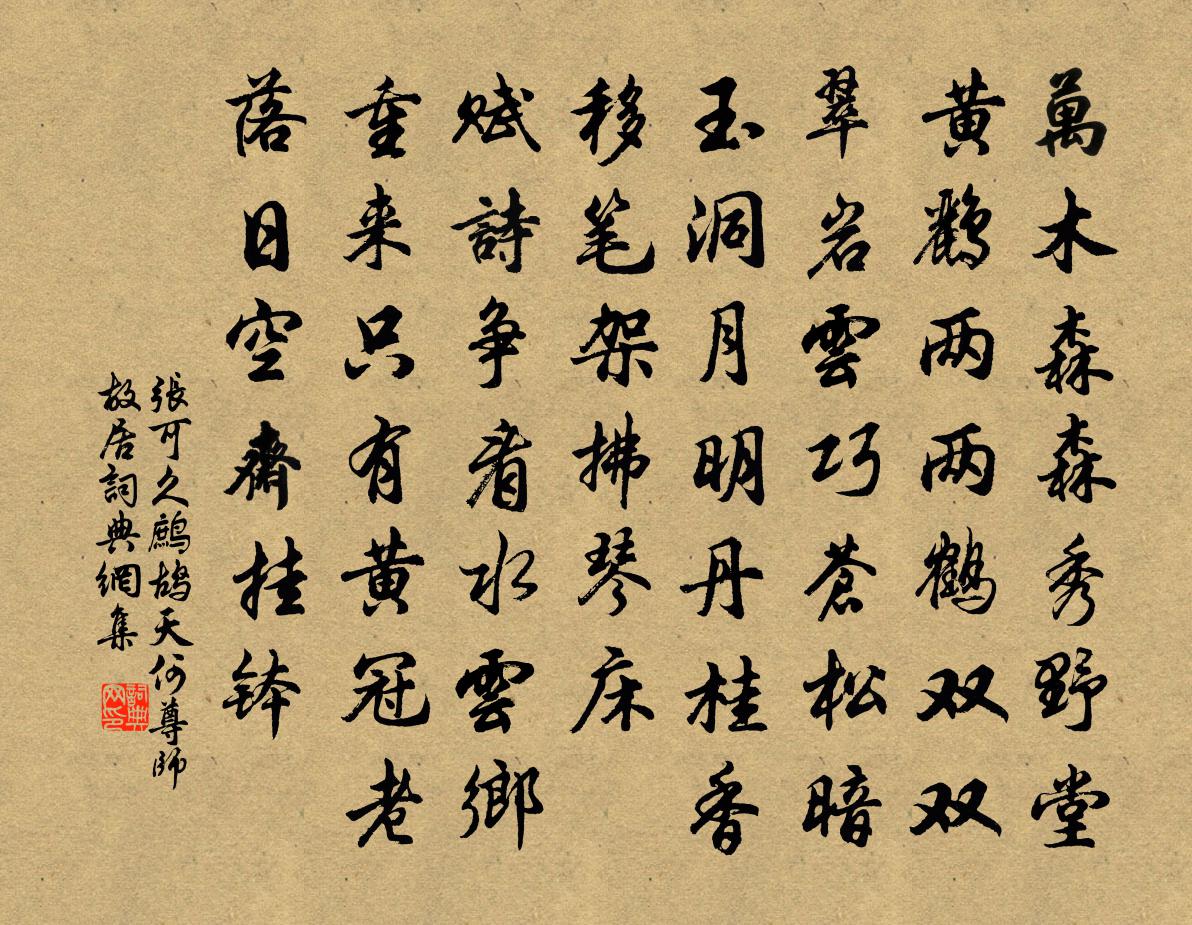 萬木森森秀野堂
黄鸝两两鶴双双
翠岩雲巧蒼松暗
玉洞月明丹桂香
移笔架拂琴床
賦詩争看水雲鄉
重来只有黄冠老
落日空齋挂钵
張可久鷓鴣天何尊師
故居詞典網集
詞典
网印